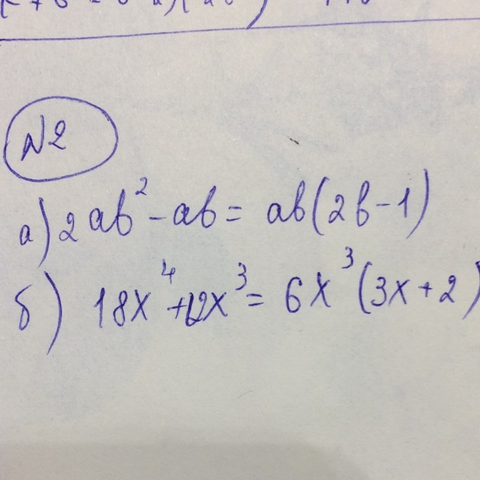 N2
а) 2ab² - ab = ab(2b - 1)
б) 18x⁴ + 12x³ = 6x³(3x + 2)